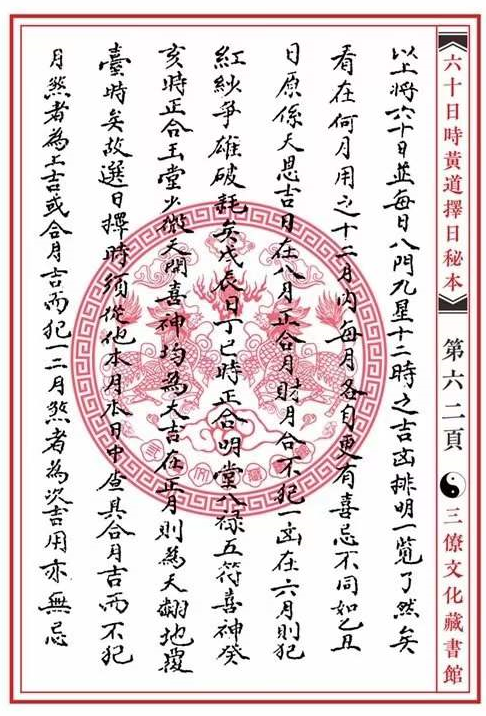 六十日時黃道擇日秘本
第六二頁
三僚文化藏書館
以上將六十日並每日八門九星十二時之吉凶排明一覽了然矣
看在何月用之十二月內每月各自更有喜忌不同如乙丑
日原係天恩吉日在八月正合月財月合不犯一凶在六月則犯
紅紗爭雄破耗矣戊辰日丁巳時正合明堂八祿五符喜神癸
亥時正合玉堂少微天開喜神均為大吉在正月則為天翻地覆
臺時矣故選日擇時須從他本月本日中查具合月吉而不犯
月煞者為上吉或合月吉而犯一二月煞者為次吉用亦無忌